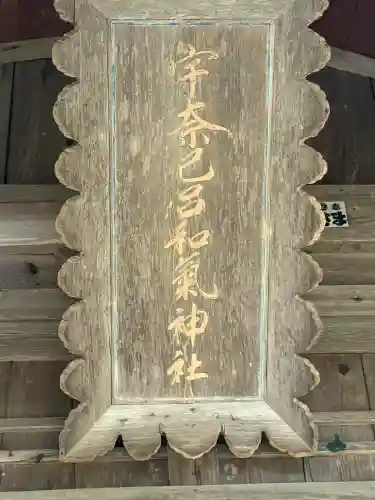 宇奈己呂和氣神社